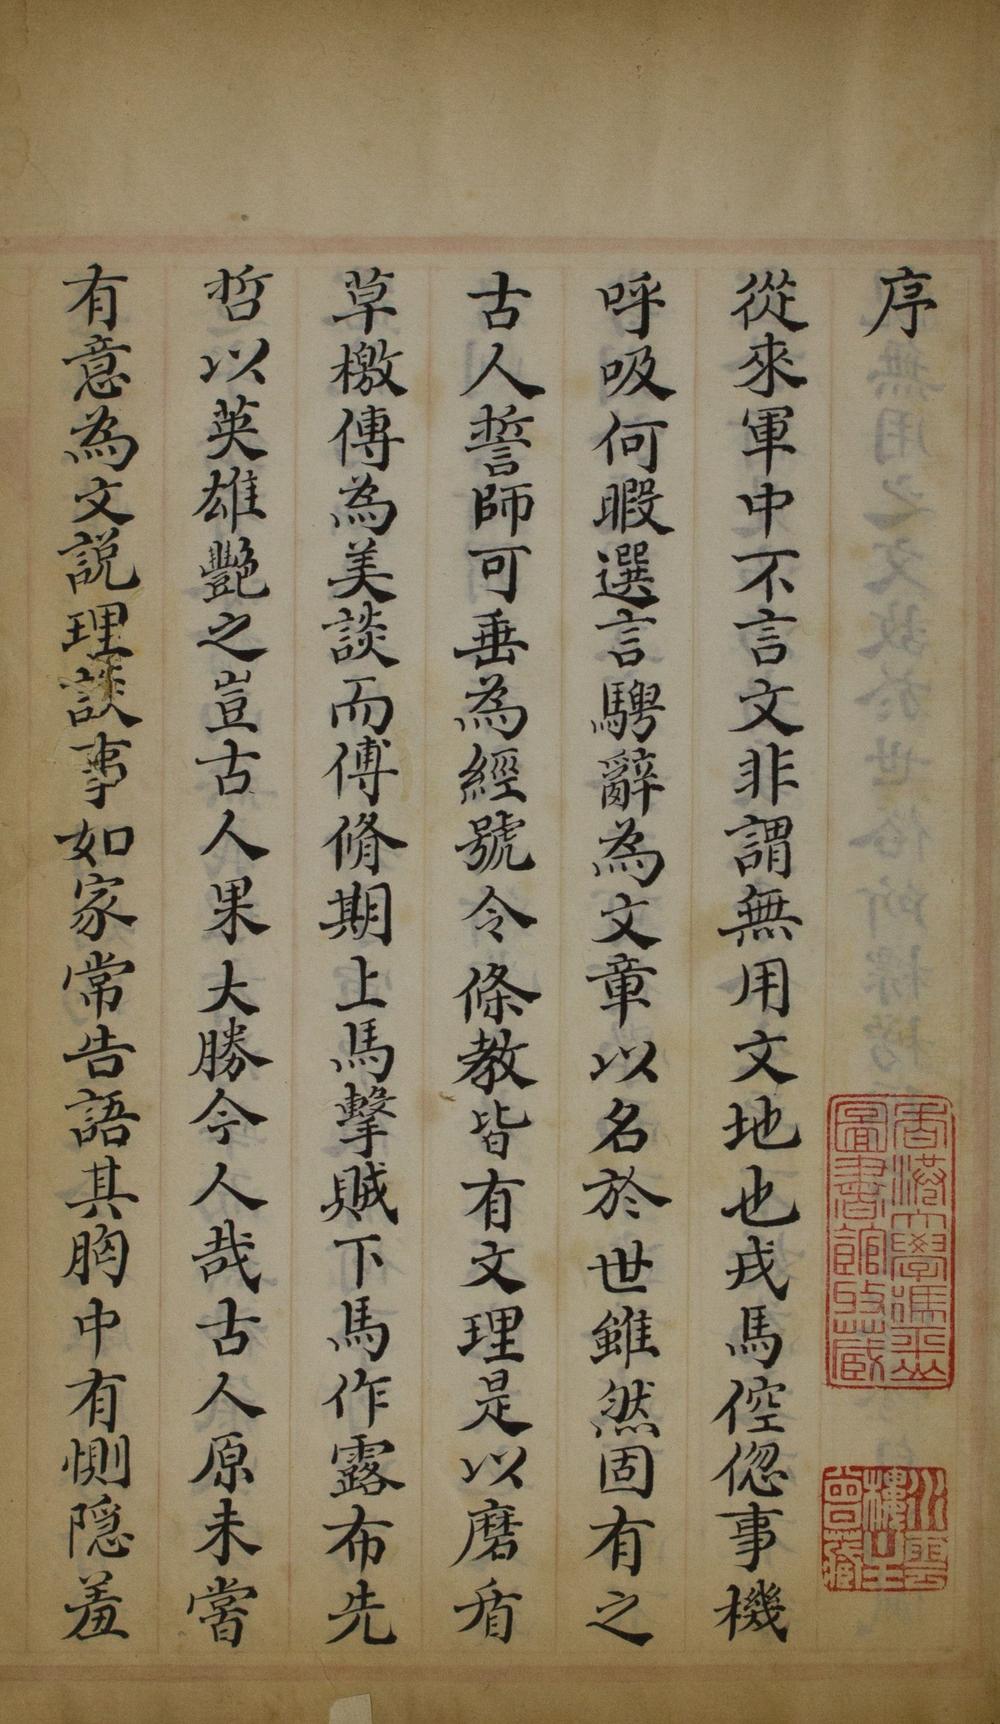 序
從來軍中不言文非謂無用文地也戎馬倥偬事機
呼吸何暇選言騁辭為文章以名於世雖然固有之
古人誓師可垂為經號令條教皆有文理是以磨盾
草檄傳為美談而傅脩期上馬擊賊下馬作露布先
哲以英雄艷之豈古人果大勝今人哉古人原未嘗
有意為文説理談事如家常告語其胸中有惻隠羞
香港大學馮平山
圖書館所藏